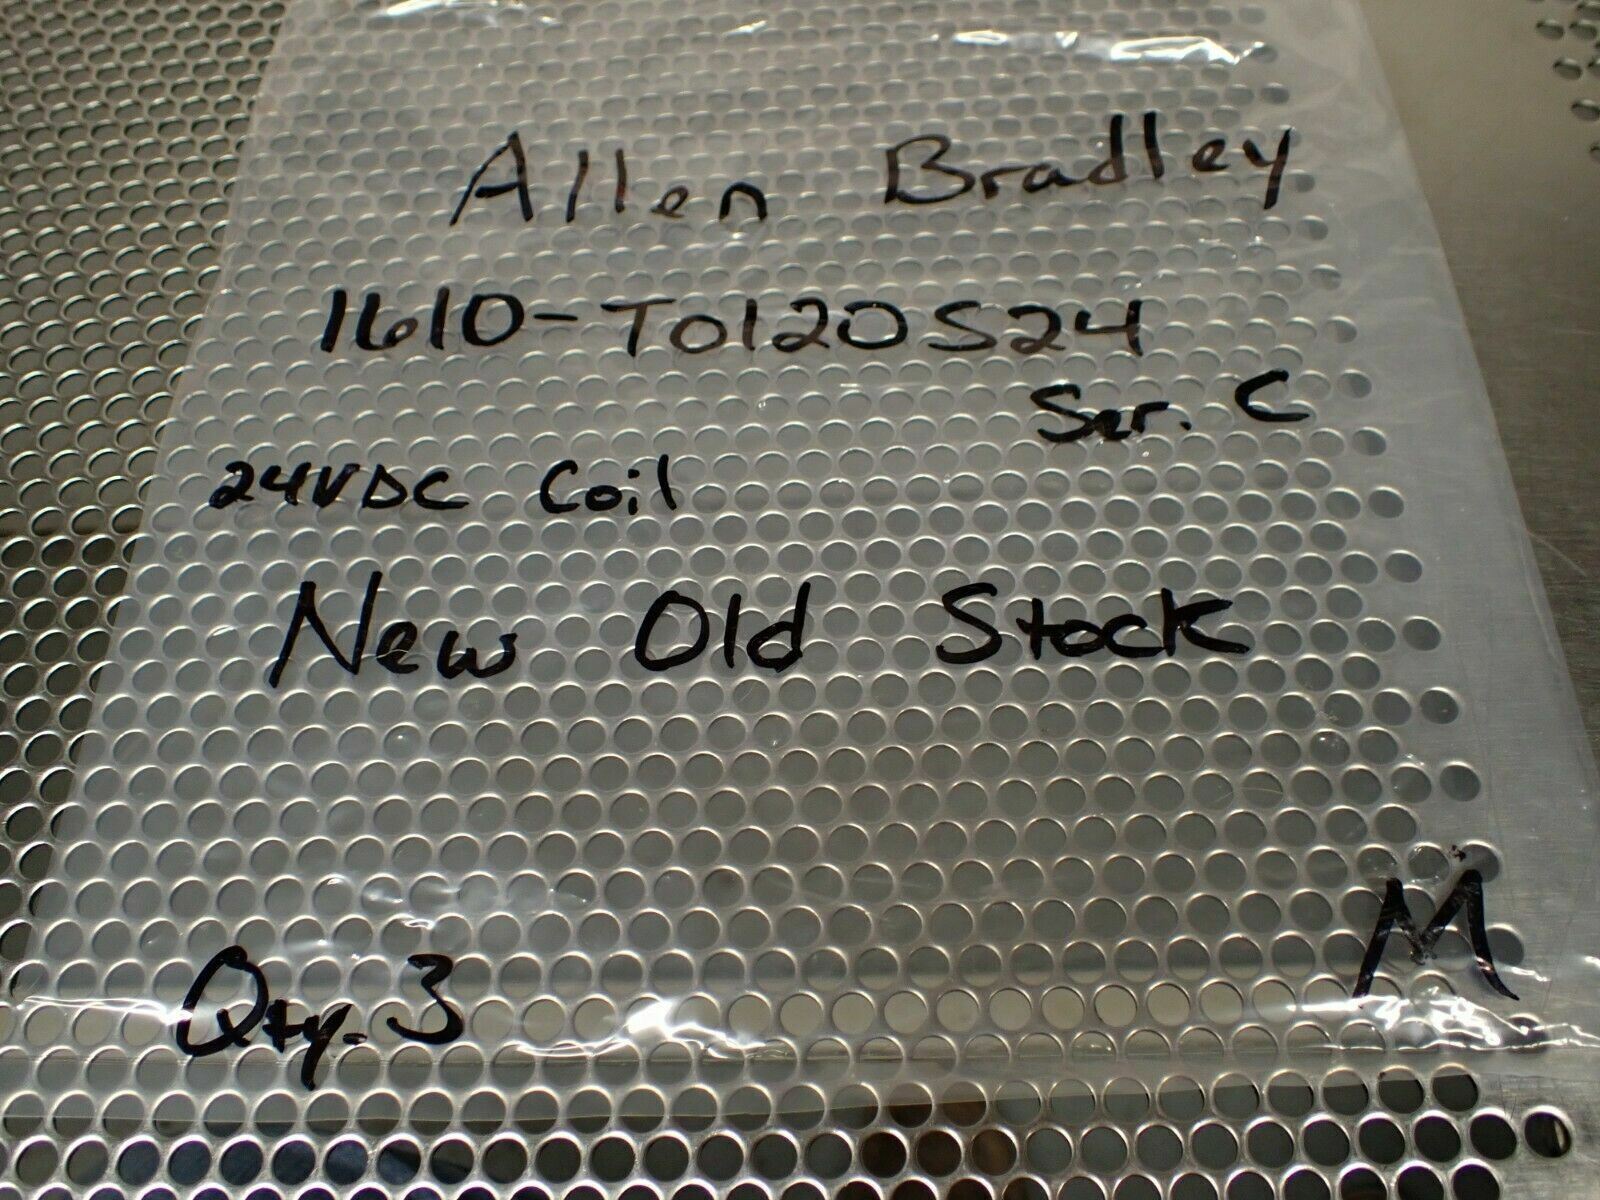 Allen Bradley
1610-T0120S24
Ser. C
24VDC Coil
New Old Stock
M
Qty. 3